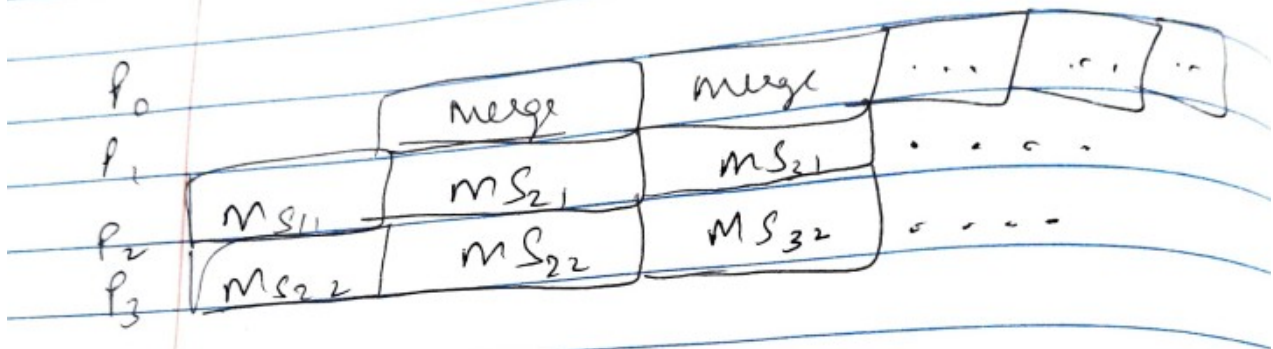 P0 merge merge ... ... ..
P1 MS11 MS21 MS21 ....
P2 MS22 MS22 MS32 ....
P3